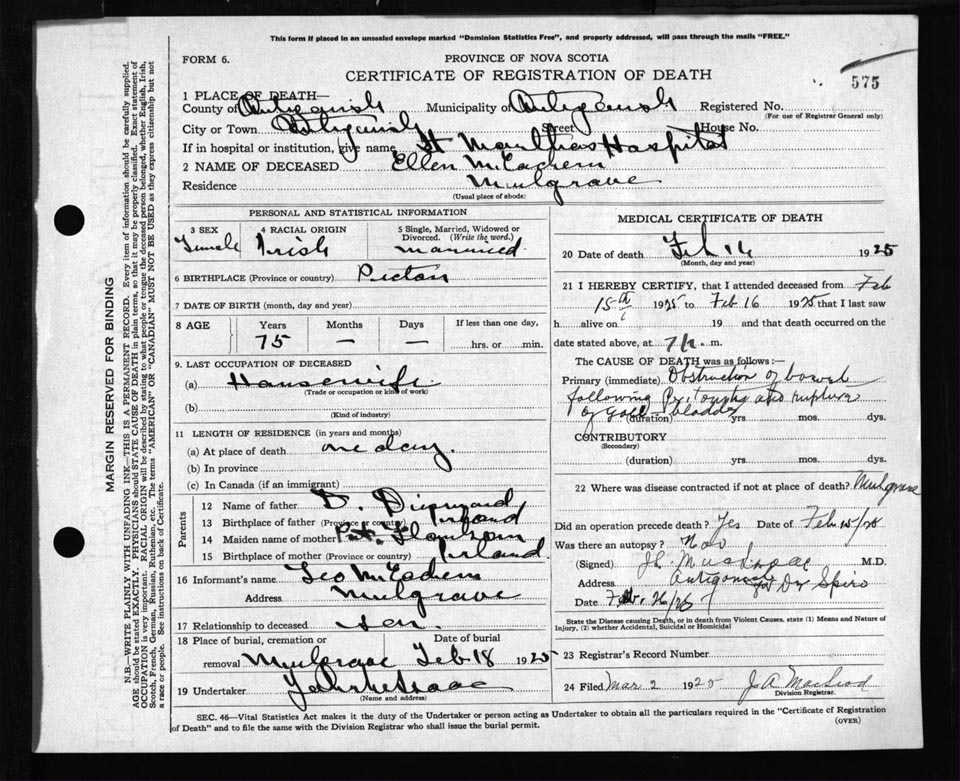 This form if placed in an unsealed envelope marked "Dominion Statistics Free", and properly addressed, will pass through the mails "FREE."
FORM 6.
PROVINCE OF NOVA SCOTIA
CERTIFICATE OF REGISTRATION OF DEATH
575
1 PLACE OF DEATH—
County of Antigonish Municipality of Antigonish Registered No.
(For use of Registrar General only)
City or Town Antigonish Street House No.
If in hospital or institution, give name St Marthas Hospital
2 NAME OF DECEASED Ellen McEachern
Residence Mulgrave
(Usual place of abode)
PERSONAL AND STATISTICAL INFORMATION
3 SEX 4 RACIAL ORIGIN 5 Single, Married, Widowed or Divorced. (Write the word.)
Female Irish married
6 BIRTHPLACE (Province or country) Pictou
7 DATE OF BIRTH (month, day and year)
8 AGE Years Months Days If less than one day,
75 — — hrs. or min.
9. LAST OCCUPATION OF DECEASED
(a) Housewife
(Trade or occupation or kind of work)
(b)
(Kind of industry)
11 LENGTH OF RESIDENCE (in years and months)
(a) At place of death one day.
(b) In province
(c) In Canada (if an immigrant)
Parents
12 Name of father D.
13 Birthplace of father (Province or country) Ireland
14 Maiden name of mother
15 Birthplace of mother (Province or country) Ireland
16 Informant's name Leo McEachern
Address Mulgrave
17 Relationship to deceased son.
18 Place of burial, cremation or removal Mulgrave Date of burial Feb 18 1925
19 Undertaker
(Name and address)
MEDICAL CERTIFICATE OF DEATH
20 Date of death Feb 16 1925
(Month, day and year)
21 I HEREBY CERTIFY, that I attended deceased from Feb
15th 1925 to Feb 16 1925 that I last saw
h alive on 19 and that death occurred on the
date stated above, at 7 m.
The CAUSE OF DEATH was as follows:—
Primary (immediate) Obstruction of bowel
following Peritonitis and rupture
of gall-bladder (duration) yrs mos. dys.
CONTRIBUTORY
(Secondary)
(duration) yrs. mos. dys.
22 Where was disease contracted if not at place of death? Mulgrave
Did an operation precede death? Yes Date of Feb 15/25
Was there an autopsy? No
(Signed) M.D.
Address Antigonish for Dr
Date Feb. 26/25
State the Disease causing Death, or in death from Violent Causes. state (1) Means and Nature of
Injury, (2) whether Accidental, Suicidal or Homicidal
23 Registrar's Record Number
24 Filed Mar 2 1925 J A MacLeod
Division Registrar.
SEC. 46—Vital Statistics Act makes it the duty of the Undertaker or person acting as Undertaker to obtain all the particulars required in the "Certificate of Registration
of Death" and to file the same with the Division Registrar who shall issue the burial permit.
(OVER)
MARGIN RESERVED FOR BINDING
N.B.—WRITE PLAINLY WITH UNFADING INK—THIS IS A PERMANENT RECORD. Every item of information should be carefully supplied.
AGE should be stated EXACTLY. PHYSICIANS should STATE CAUSE OF DEATH in plain terms, so that it may be properly classified. Exact statement of
OCCUPATION is very important. RACIAL ORIGIN will be described by stating to what people or tongue the deceased person belonged, whether English, Irish,
Scotch, French, German, Russian, Ruthenian, etc. The terms "AMERICAN" or "CANADIAN" MUST NOT BE USED as they express citizenship but not
a race or people. See instructions on back of Certificate.